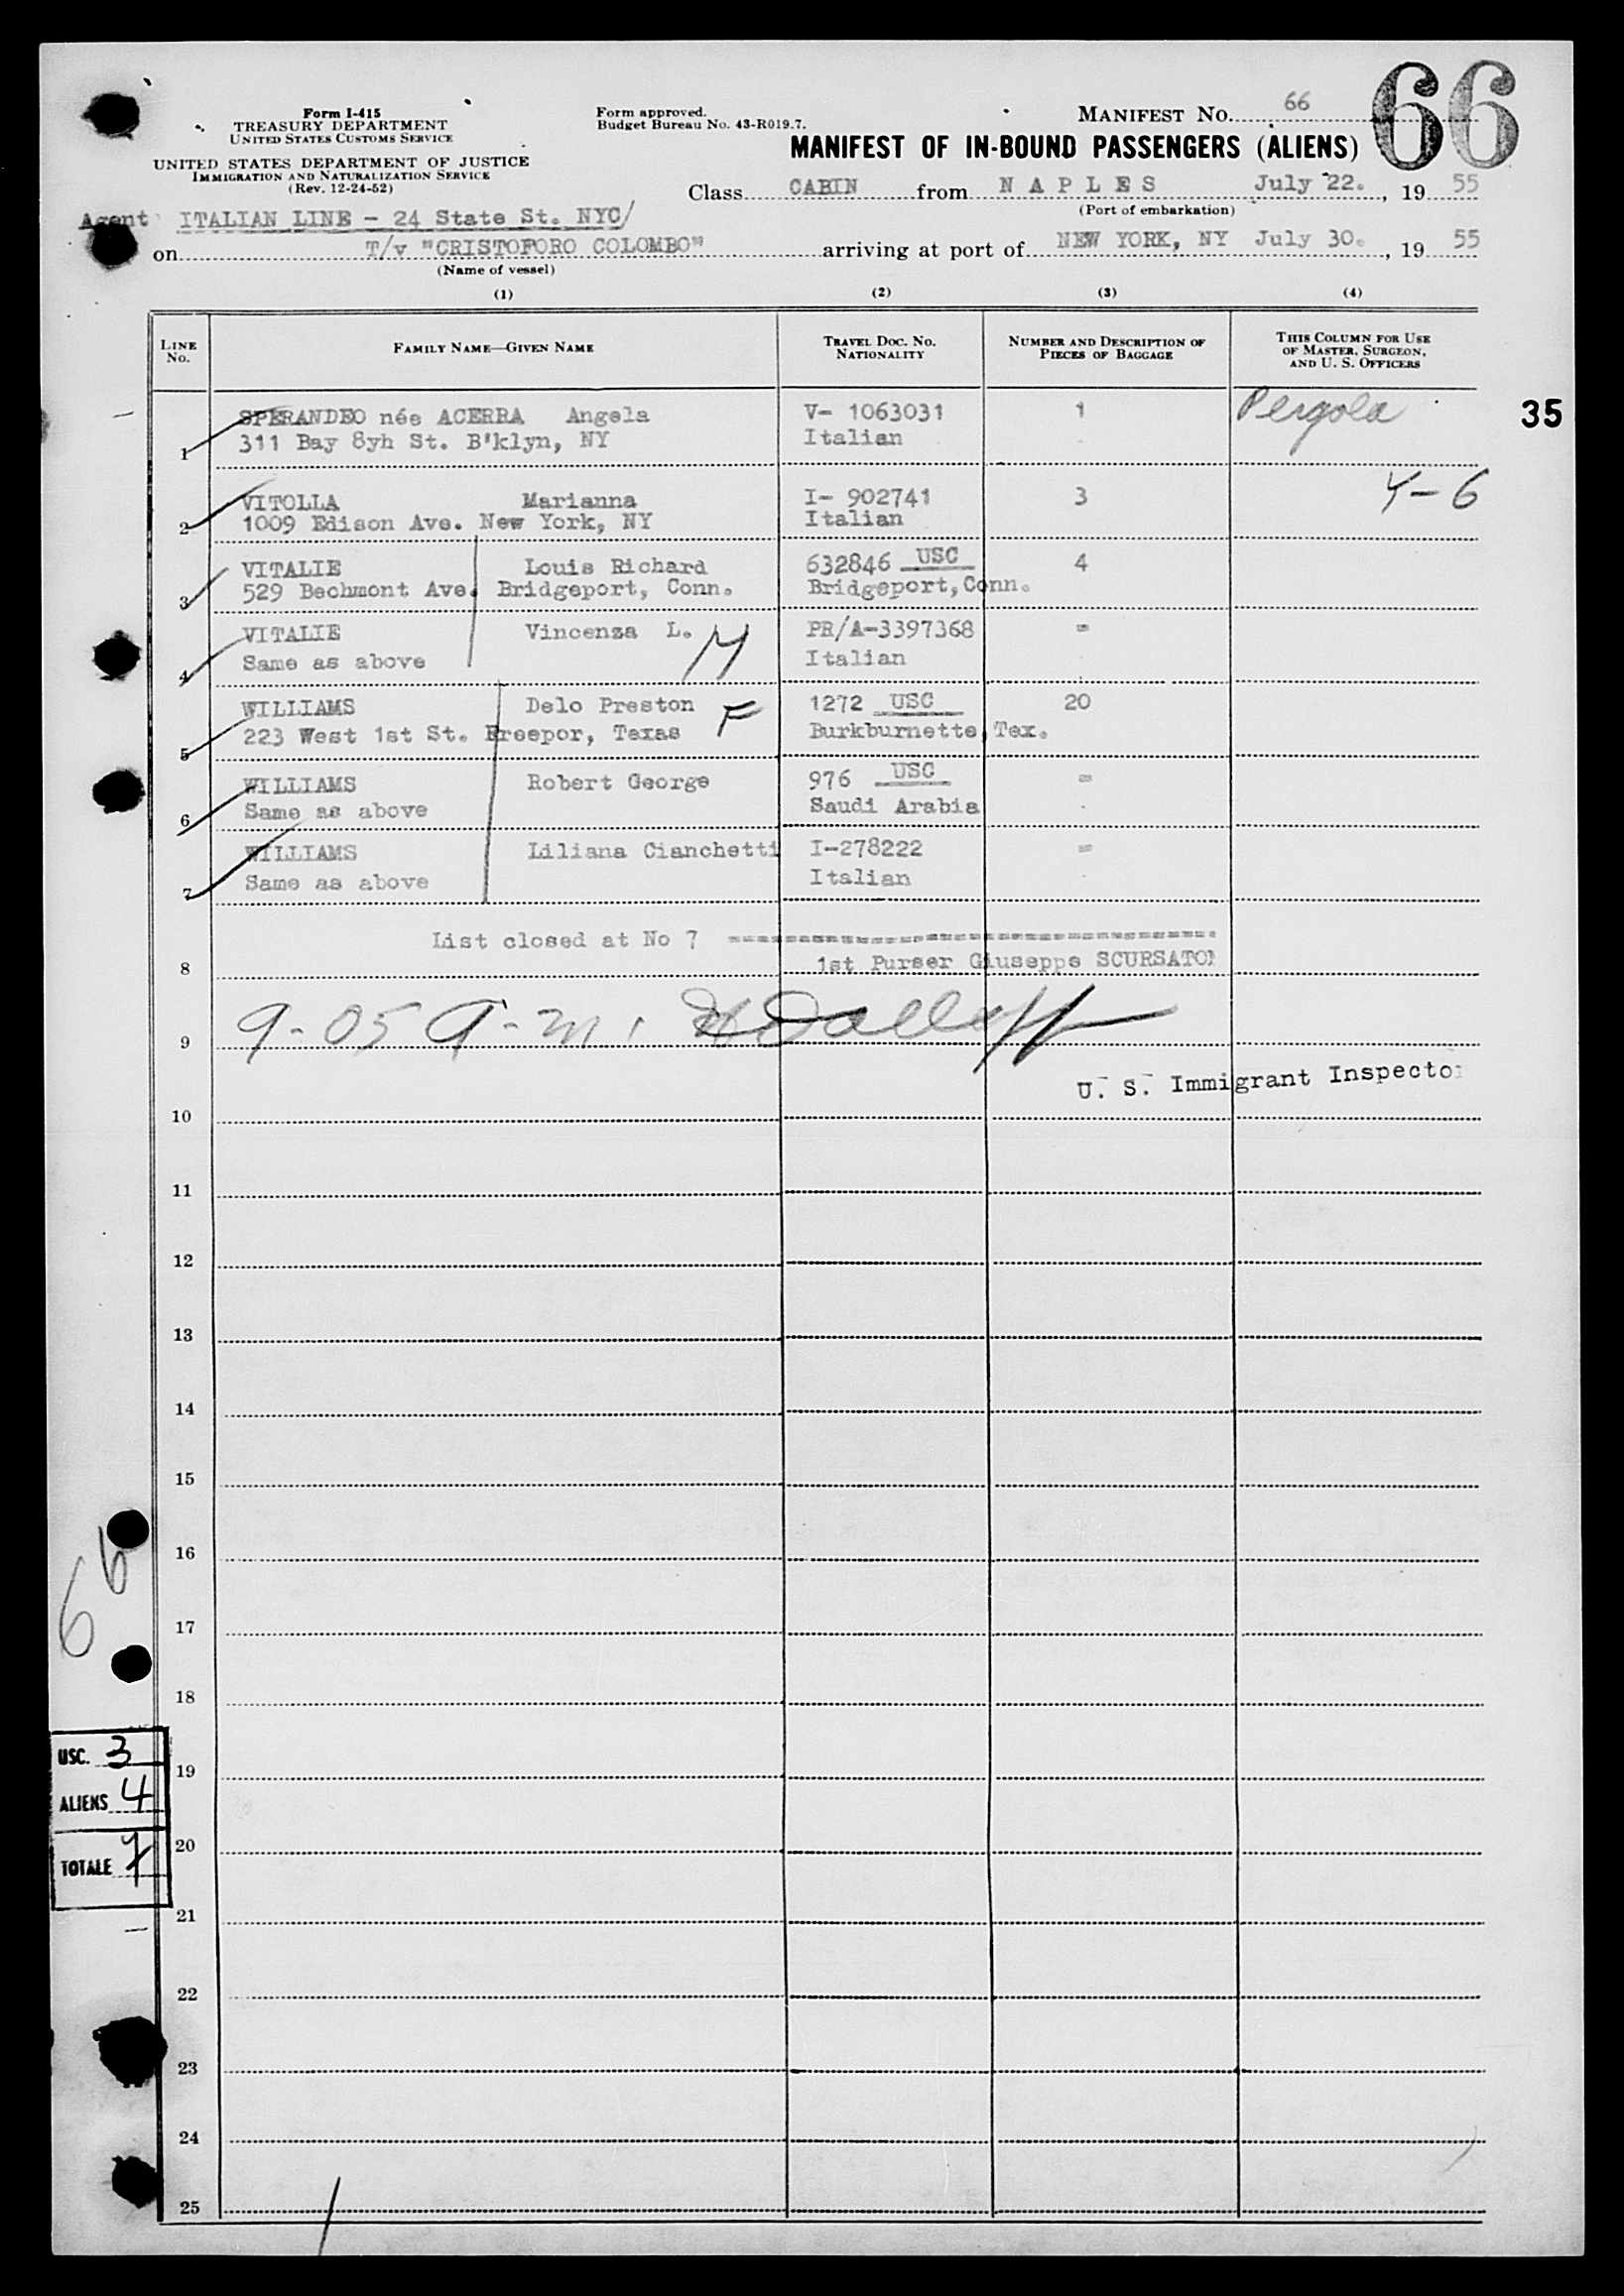 66
Form I-415
TREASURY DEPARTMENT
UNITED STATES CUSTOMS SERVICE
UNITED STATES DEPARTMENT OF JUSTICE
IMMIGRATION AND NATURALIZATION SERVICE
(Rev. 12-24-52)
Form approved.
Budget Bureau No. 43-R019.7.
MANIFEST No. 66
MANIFEST OF IN-BOUND PASSENGERS (ALIENS)
Class CABIN from N A P L E S July 22. , 19 55
(Port of embarkation)
Agent ITALIAN LINE - 24 State St. NYC/
on T/v "CRISTOFORO COLOMBO" arriving at port of NEW YORK, NY July 30. , 19 55
(Name of vessel)
(1) (2) (3) (4)
LINE No. FAMILY NAME—GIVEN NAME TRAVEL DOC. No. NATIONALITY NUMBER AND DESCRIPTION OF PIECES OF BAGGAGE THIS COLUMN FOR USE OF MASTER, SURGEON, AND U. S. OFFICERS
SPERANDEO née ACERRA Angela V- 1063031 1 Pergola 35
1 311 Bay 8yh St. B'klyn, NY Italian
VITOLLA Marianna I- 902741 3 4-6
2 1009 Edison Ave. New York, NY Italian
VITALIE Louis Richard 632846 USC 4
3 529 Bechmont Ave. Bridgeport, Conn. Bridgeport, Conn.
VITALIE Vincenza L. M PR/A-3397368 =
4 Same as above Italian
WILLIAMS Delo Preston F 1272 USC 20
5 223 West 1st St. Freepor, Texas Burkburnette, Tex.
WILLIAMS Robert George 976 USC =
6 Same as above Saudi Arabia
WILLIAMS Liliana Cianchetti I-278222 =
7 Same as above Italian
List closed at No 7 ================
8 1st Purser Giuseppe SCURSATON
9 9-05 A-m.
U. S. Immigrant Inspector
10
11
12
13
14
15
16
66
17
18
USC. 3
19
ALIENS 4
20
TOTALE 7
21
22
23
24
25